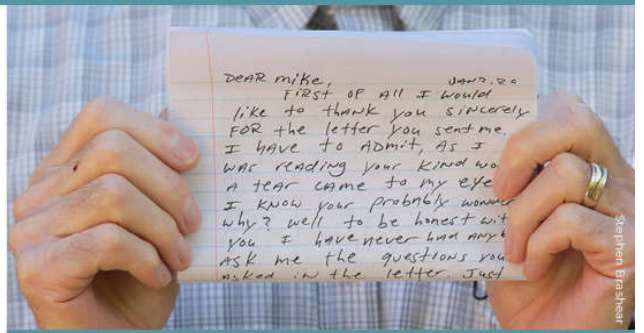 DEAR mike, JAN 2. 20
FIRST OF All I would
like to thank you sincerely
FOR the letter you sent me.
I have to ADmit, As I
was reading your kind wo
A tear came to my eye
I know your probably wonder
why? well to be honest wit
you I have never had any
ASK me the questions you
asked in the letter. Just
Stephen Brashear